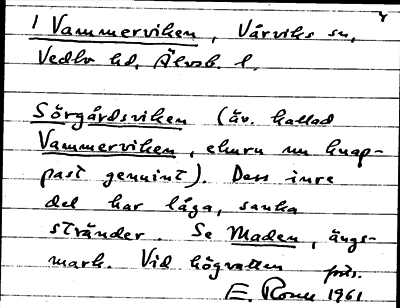 1 Vammerviken, Vårviks sn,
Vedbo hd, Älvsb. l.
Sörgårdsviken (äv. kallad
Vammerviken, ehuru nu knap-
past genuint). Dess inre
del har låga, sanka
stränder. Se Maden, ängs-
mark. Vid högvatten
E. 1961